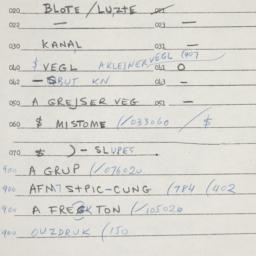 020 BLOTE /LUZTE 021
022 — 023 —
030 KANAL 031 —
040 $ VEGL A KLEINERVEGL (407 041 O
042 — $BUT KN 043 —
050 A GREJSER VEG 051 —
060 $ MISTOME (/033060 /$
070 $ ) - SLUPES
900 A GRUP (/076020
900 AFM7 S+PIC-CUNG (784 (402
900 A FRECKTON (/105020
900 OUZDRUK (150